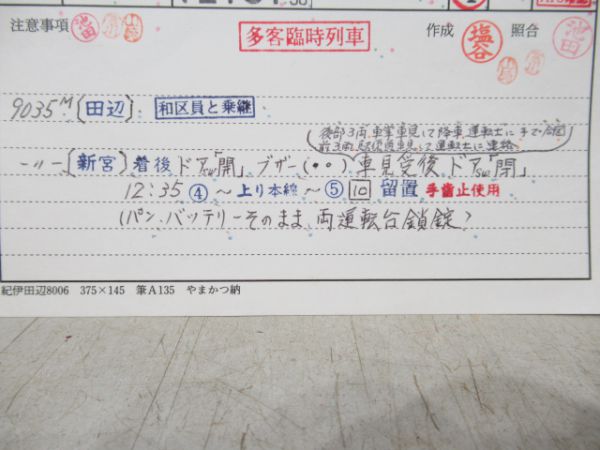 注意事項 池田 多客臨時列車 作成 塩谷 照合 池田
9035M〔田辺〕 和区員と乗継
後部3両、車掌車見して降車、運転士に手で合図
前3両
-〃-〔新宮〕着後ドアsw「開」ブザー(・・)車見受後ドアsw「閉」
12:35 ④～上り本線～⑤ 10 留置 手歯止使用
(パン、バッテリーそのまま、両運転台鎖錠?
紀伊田辺8006 375×145 筆A135 やまかつ納